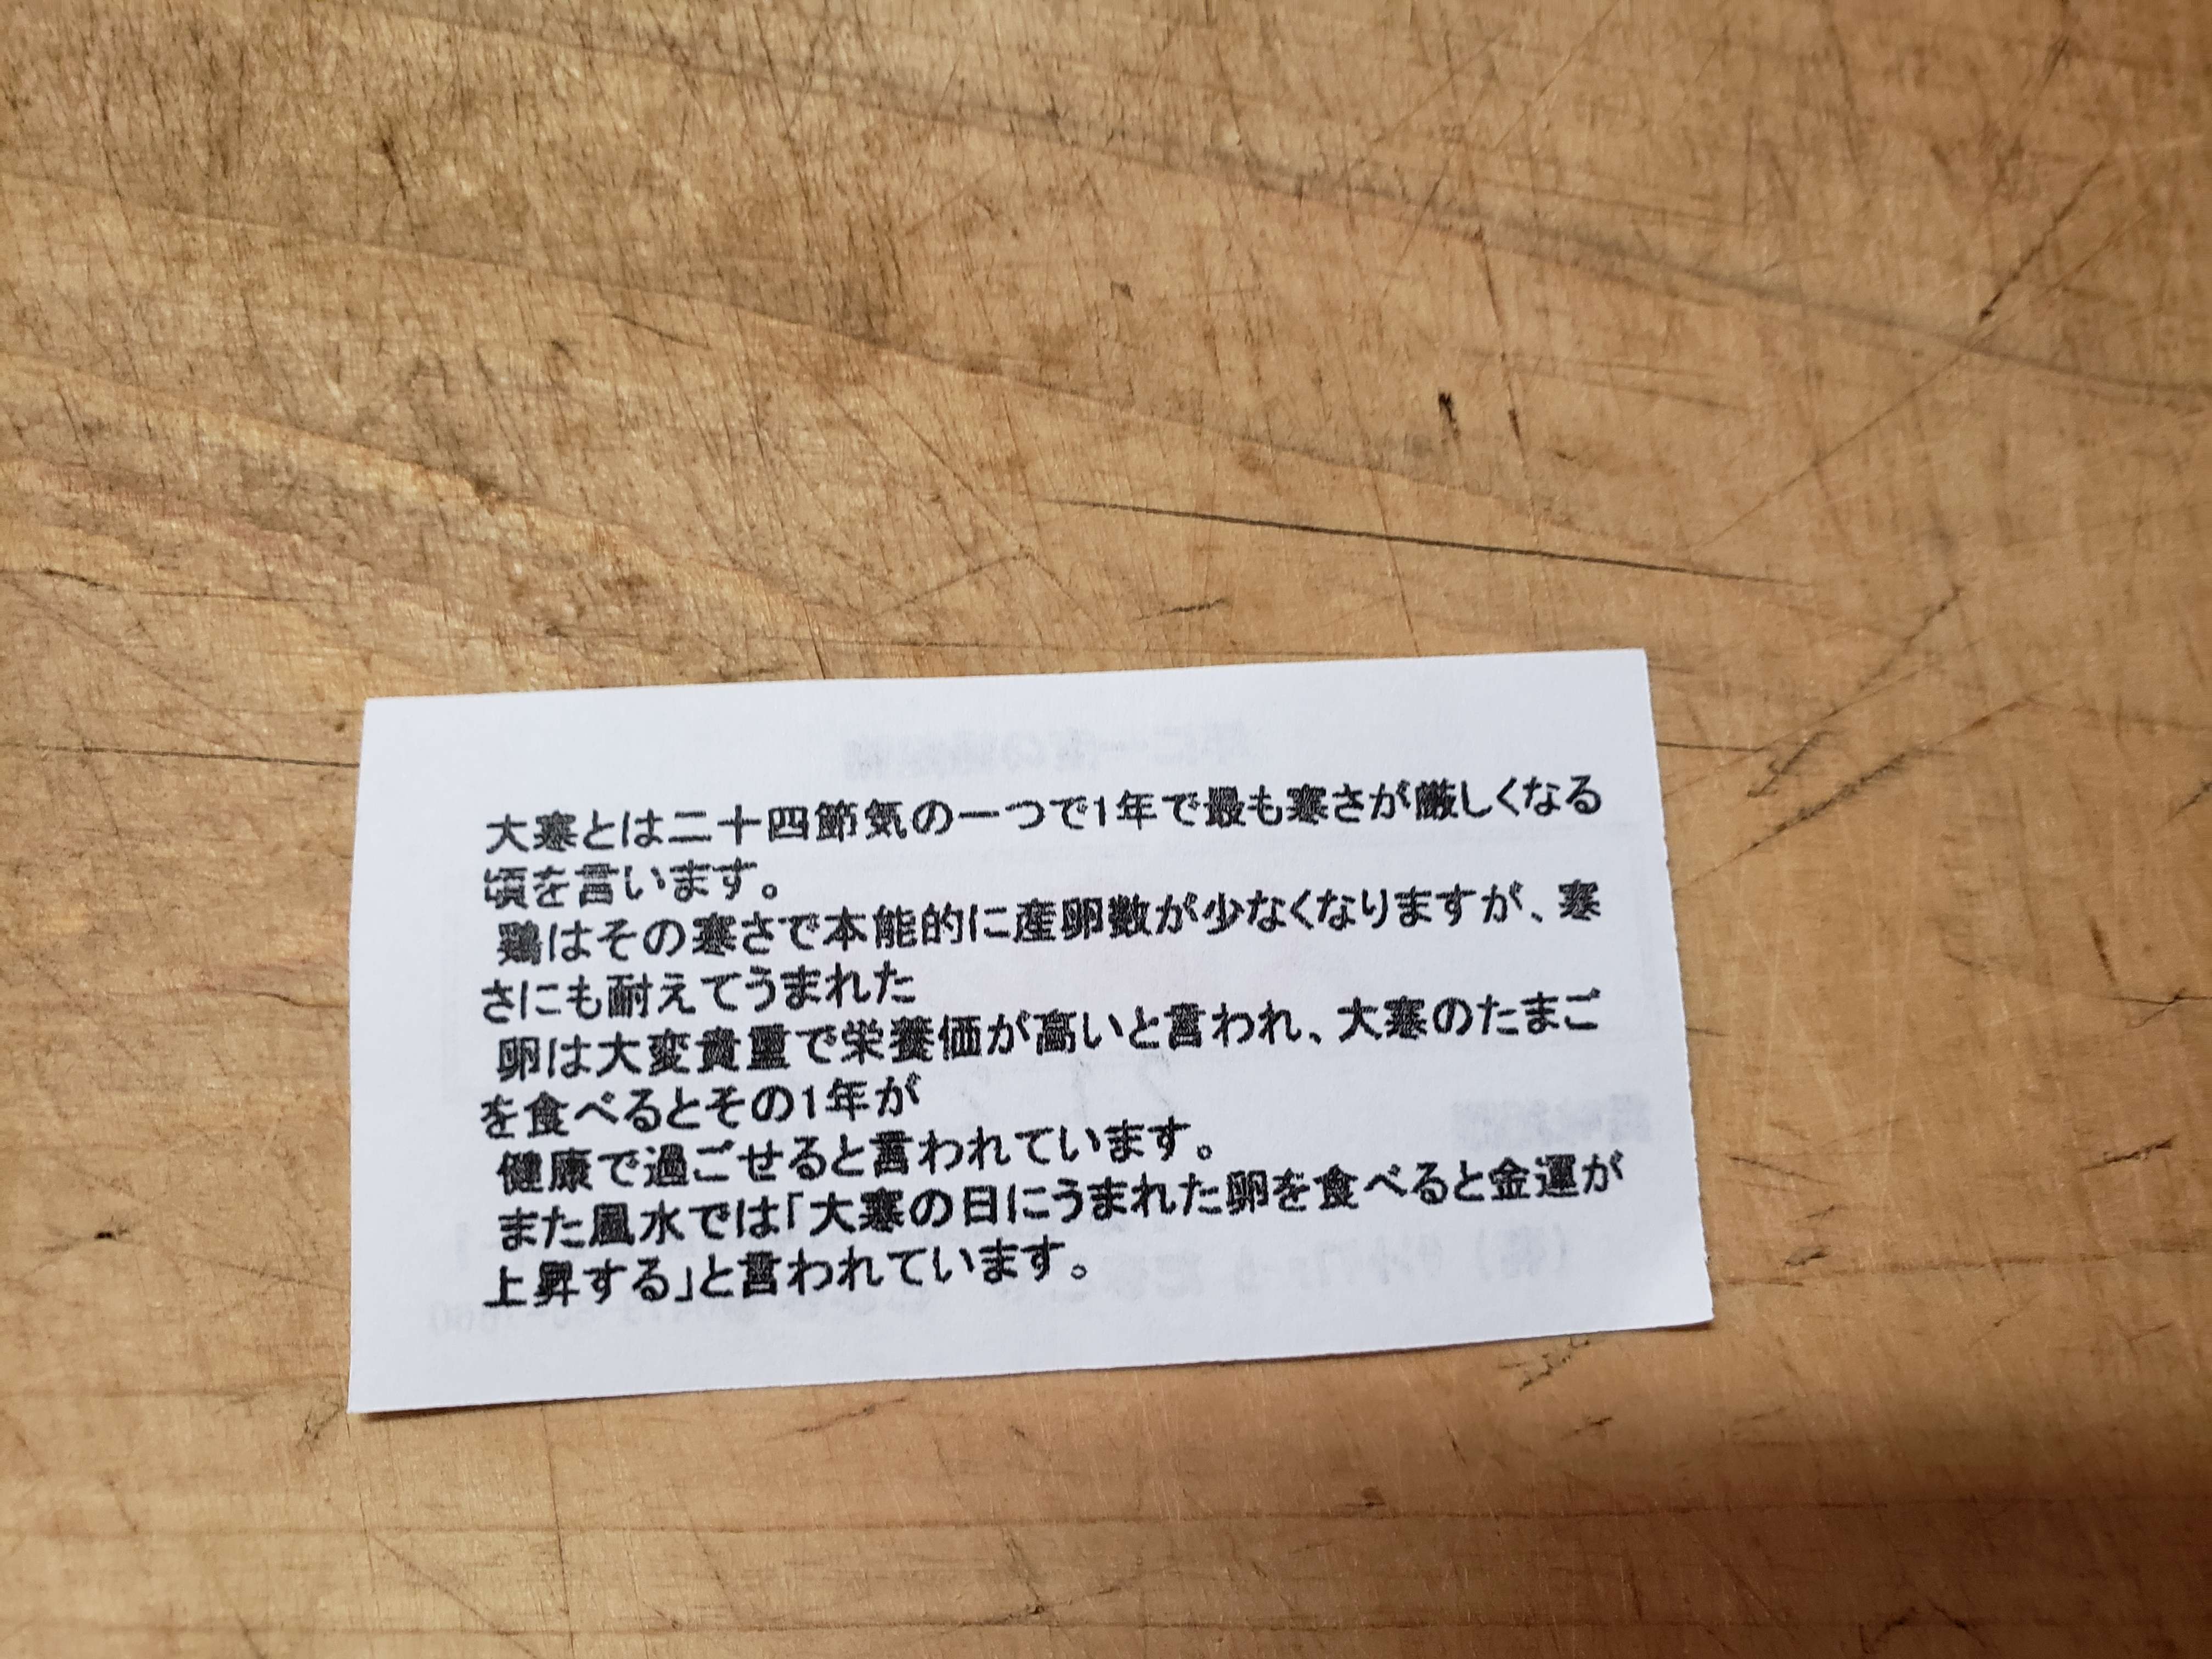 大寒とは二十四節気の一つで1年で最も寒さが厳しくなる
頃を言います。
鶏はその寒さで本能的に産卵数が少なくなりますが、寒
さにも耐えてうまれた
卵は大変貴重で栄養価が高いと言われ、大寒のたまご
を食べるとその1年が
健康で過ごせると言われています。
また風水では「大寒の日にうまれた卵を食べると金運が
上昇する」と言われています。